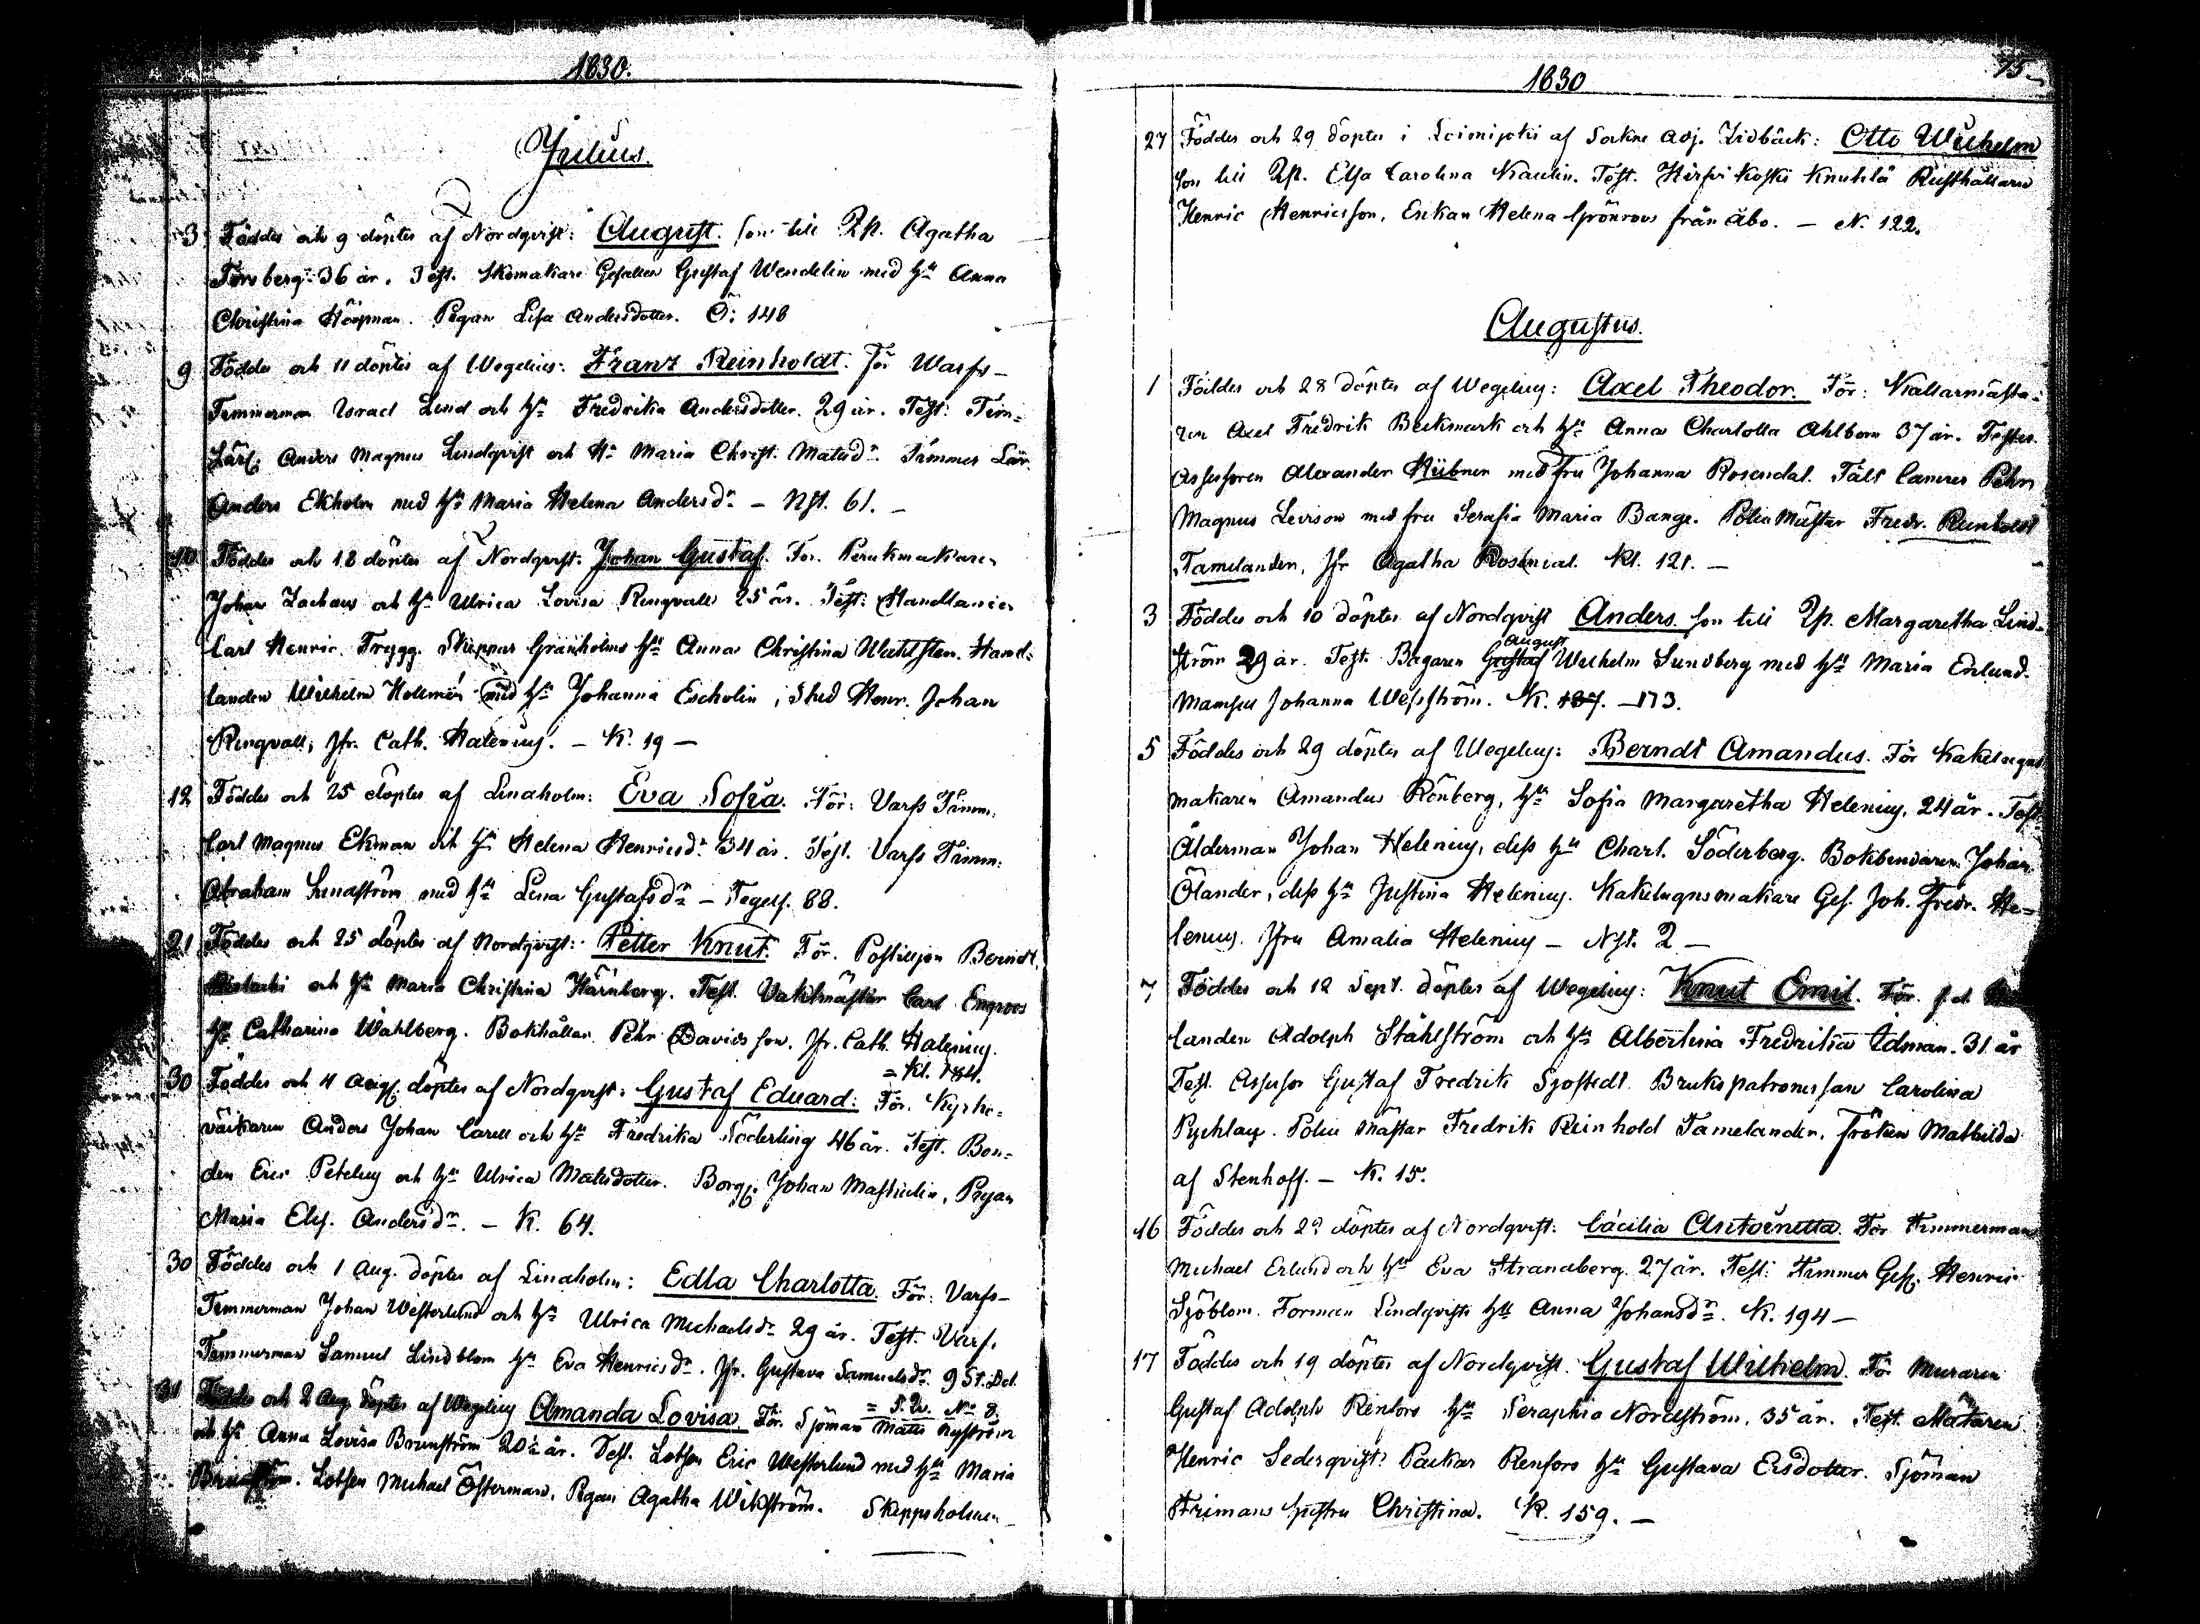 1830.
Julius.
3 Föddes och 9 döptes af Nordqvist: August. son till Qp. Agatha
Forsberg 36 år. Test. Skomakare Gesällen Gustaf Wendelin med hu Anna
Christina Höopman. Pigan Lisa Andersdotter. Ö: 148
9 Föddes och 11 döptes af Wegelius: Franz Reinholdt. För Warfs-
Timmerman Israel Lind och hu Fredrika Andersdotter. 29 år. Test: Tim-
Lärl: Anders Magnus Lindqvist och Hu Maria Christ. Matsdr. Timmer Lär.
Anders Ekholm med hu Maria Helena Andersdr. – Nst. 61. –
10 Föddes och 18 döptes af Nordqvist. Johan Gustaf. För. Perukmakaren
Johan Zachau och hu Ulrica Lovisa Ringvall 25 år. Test: Handlanden
Carl Henric Trygg. Skeppar Granholms hu Anna Christina Wahlsten. Hand-
landen Wilhelm Hollmén med hu Johanna Escholin, Stud. Henr. Johan
Ringvall, Jfr. Cath. Halenius. – K. 19 –
12 Föddes och 25 döptes af Lindholm: Eva Sofia. För: Varfs Timm.
Carl Magnus Ekman och hu Helena Henricsdr. 34 år. Test. Varfs Timm:
Abraham Lindström med hu Lena Gustafsdr – Tegels. 88.
21 Föddes och 25 döptes af Nordqvist: Petter Knut. För. Postiljon Berndt
och hu Maria Christina Härnberg. Test. Vaktmästar Carl Engroos
hu Catharina Wahlberg. Bokhållar Pehr Davidsson. Jfr. Cath. Halenius.
= Kl. 184.
30 Föddes och 4 Aug. döptes af Nordqvist: Gustaf Eduard: För. Kyrko-
väktaren Anders Johan Carell och hu Fredrika Söderling 46 år. Test. Bon-
den Eric Petelius och hu Ulrica Matsdotter. Borg. Johan Mastelin, Pigan
Maria Elis. Andersdr. – K. 64.
30 Föddes och 1 Aug. döptes af Lindholm: Edla Charlotta. För: Varfs-
Timmerman Johan Westerlund och hu Ulrica Michaelsdr 29 år. Test. Varfs.
Timmerman Samuel Lindblom hu Eva Henricsdr. Jfr. Gustava Samuelsdr. 9 St. Del.
= No 8.
31 Föddes och 2 Aug. döptes af Wegelius Amanda Lovisa. För. Sjöman Matts Nyström
och hu Anna Lovisa Brunström 20½ år. Test. Lotsen Eric Westerlund med hu Maria
Brunström. Lotsen Michael Österman, Pigan Agatha Wikström. Skeppsholmen –
1830
75
27 Föddes och 29 döptes i Loimijoki af Sockne Adj. Lidbäck: Otto Wilhelm
son till Qp. Elsa Carolina Kaulin. Test. Hirsikoski Knuhtla Rusthållaren
Henric Henricsson, Enkan Helena Grönroos från Åbo. – N. 122.
Augustus.
1 Föddes och 28 döptes af Wegelius: Axel Theodor. För: Källarmästa-
ren Axel Fredrik Beckmark och hu Anna Charlotta Ahlbom 37 år. Testes.
Assessoren Alexander Hübner med fru Johanna Rosendal. Fält Camrer Pehr
Magnus Levison med fru Serafia Maria Bange. Polis Mäster Fredr. Reinholdt
Tamelander, Jfr Agatha Rosendal. Kl. 121. –
3 Föddes och 10 döptes af Nordqvist Anders. son till Qp. Margaretha Lind-
August
ström 29 år. Test. Bagaren Gustaf Wilhelm Sundberg med hu Maria Enlund.
Mamsell Johanna Wesström. K. 187. – 173.
5 Föddes och 29 döptes af Wegelius: Berndt Amandus. För Kakelugns
makaren Amandus Rönberg, hu Sofia Margaretha Helenius, 24 år. Test.
Ålderman Johan Helenius, dess hu Charl. Söderberg. Bokbindaren Johan
Ölander, dess hu Justina Helenius. Kakelugnsmakare Ges. Joh. Fredr. He-
lenius. Jfru Amalia Helenius – Nst. 2 –
7 Föddes och 12 Sept. döptes af Wegelius: Knut Emil. För. f.d.
landen Adolph Ståhlström och hu Albertina Fredrika Idman. 31 år
Test. Assessor Gustaf Fredrik Sjöstedt. Brukspatronessan Carolina
Pychlau. Polis Mästar Fredrik Reinhold Tamelander, fröken Mathilda
af Stenhoff. – K. 15.
16 Föddes och 22 döptes af Nordqvist: Cäcilia Antoinetta. För Timmerman
Michael Erlund och hu Eva Strandberg 27 år. Test: Timmer Ges. Henric
Sjöblom. Forman Lindqvists hu Anna Johansdr. K. 194 –
17 Föddes och 19 döptes af Nordqvist. Gustaf Wilhelm. För Muraren
Gustaf Adolph Renfors hu Seraphia Nordström, 35 år. Test. Mätaren
Henric Sederqvist. Packar Renfors hu Gustava Ersdotter. Sjöman
Frimans hustru Christina. K. 159. –